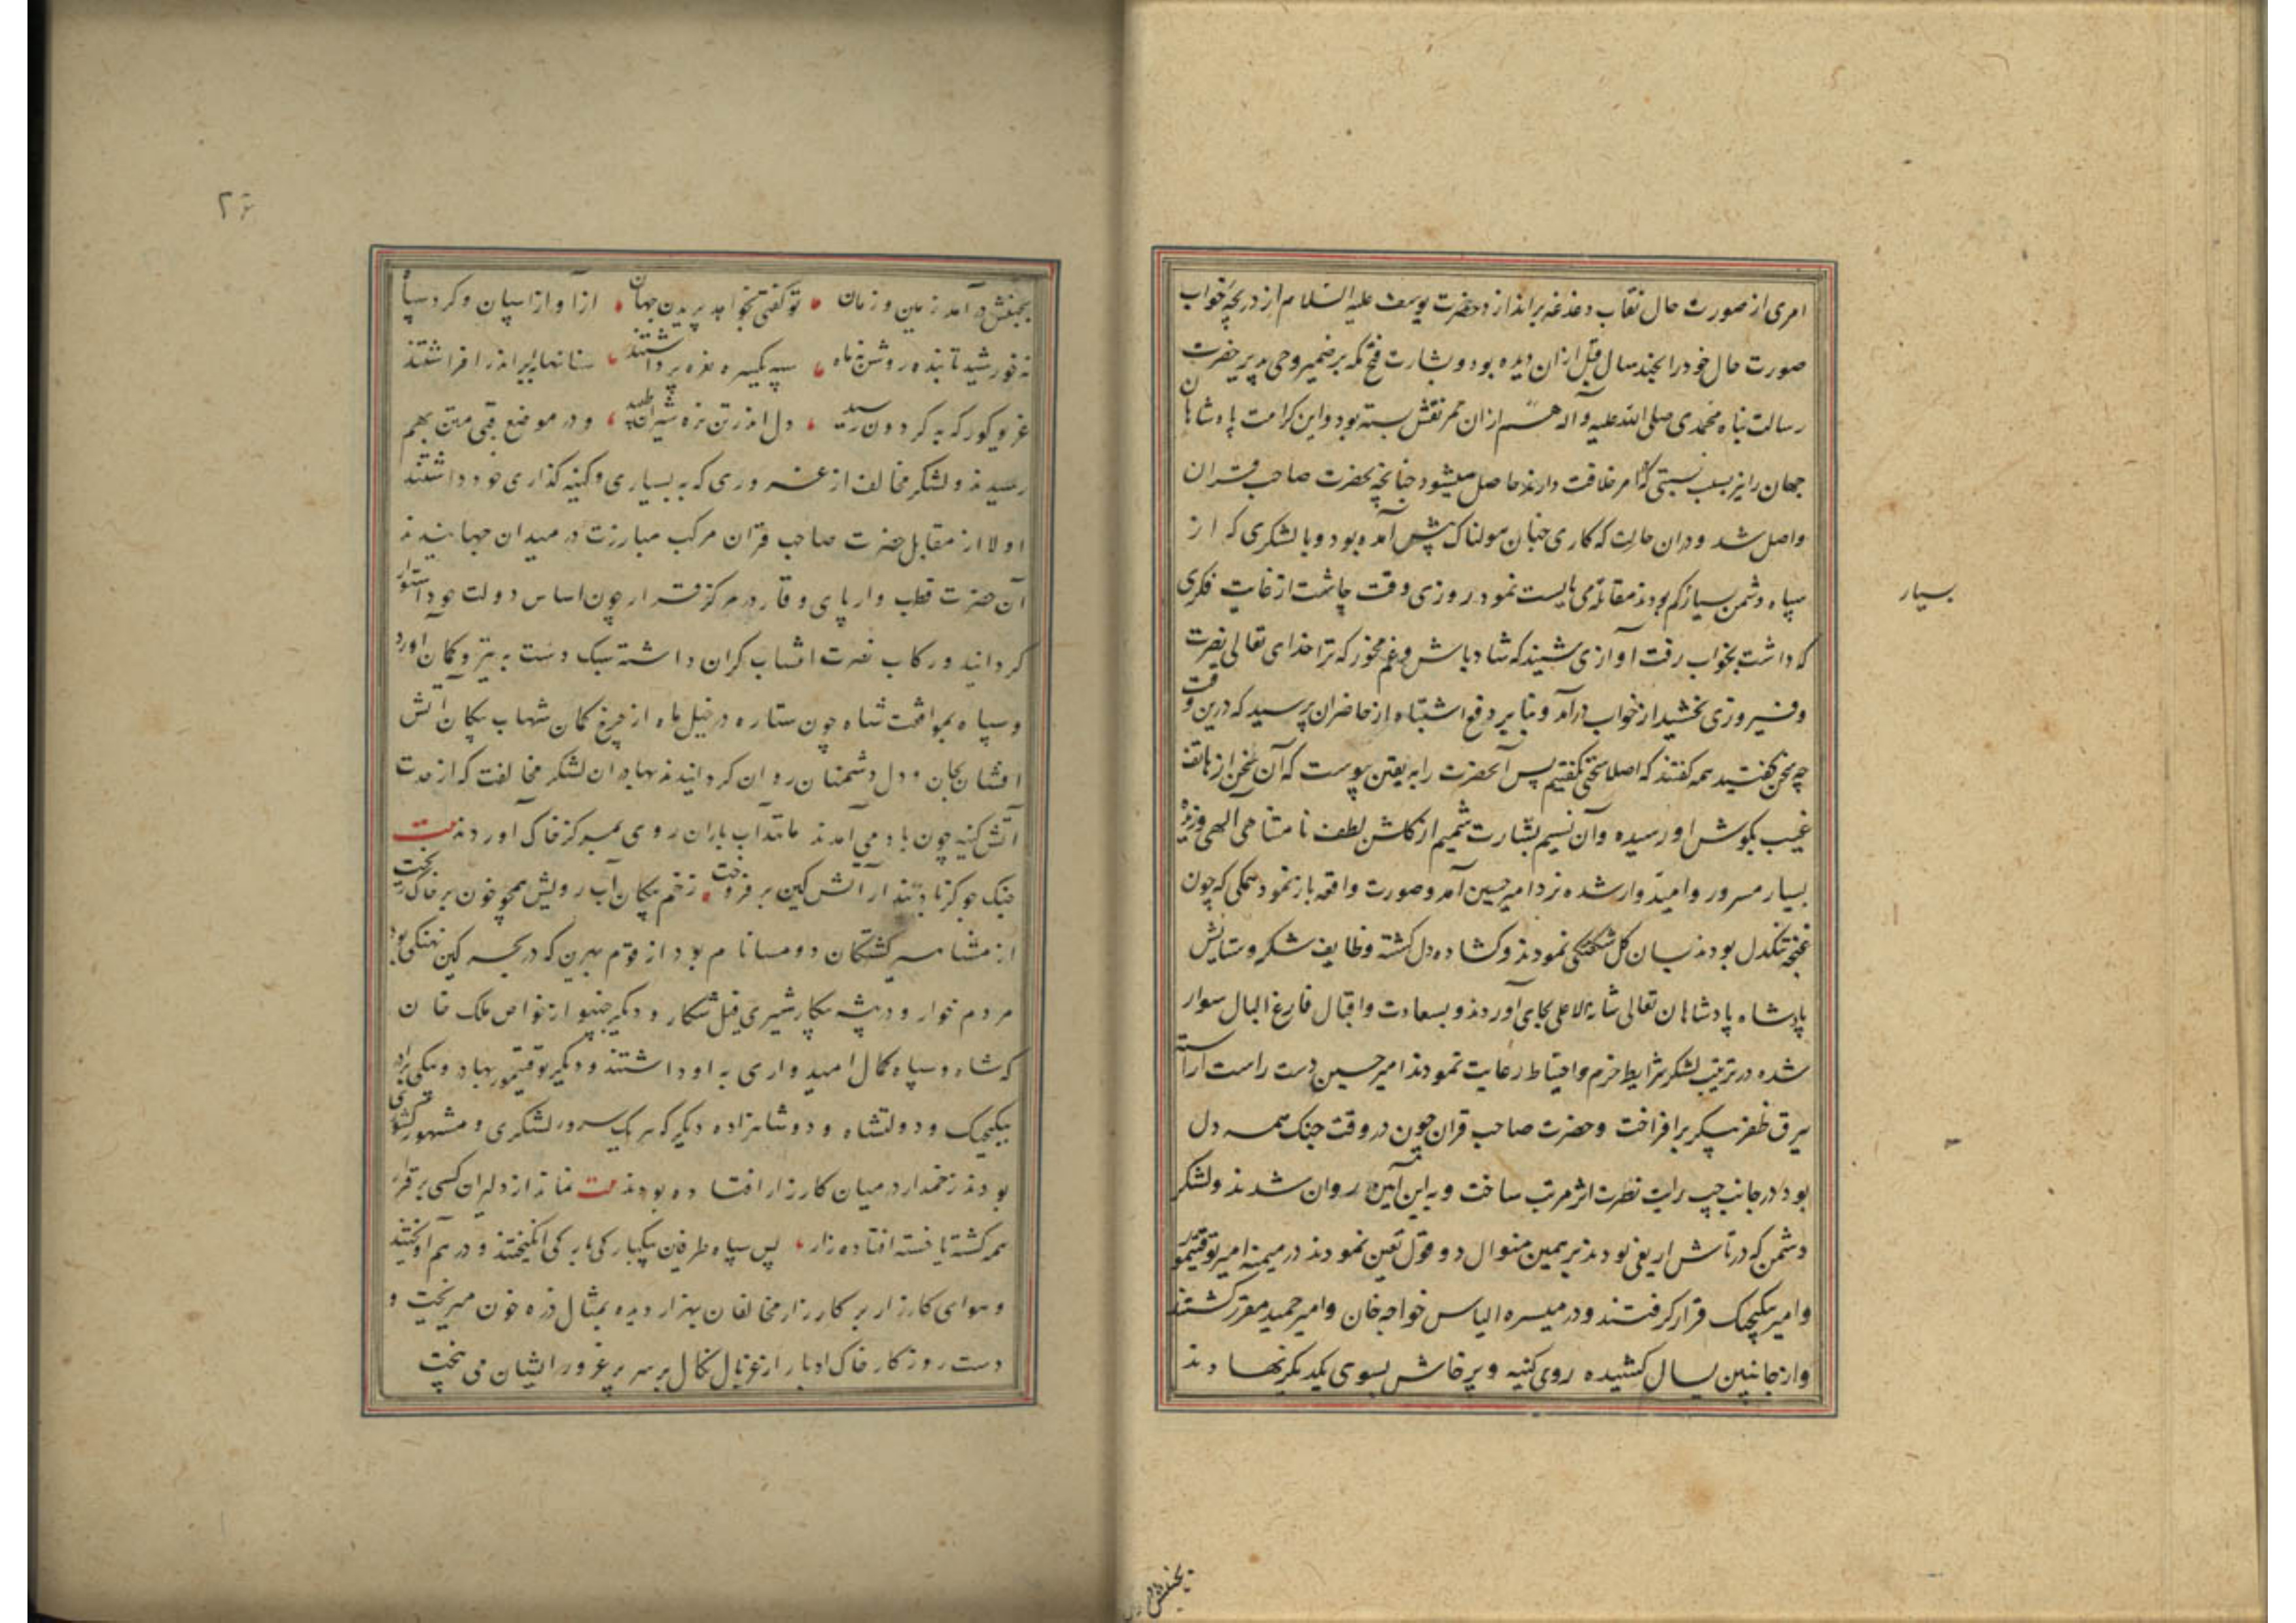 امری از صورت حال نقاب دغدغه براندازد و حضرت یوسف علیه السلام از دریچه خواب
صورت حال خود را بچند سال قبل ازان دیده بود و بشارت فتح مکه بر ضمیر وحی پذیر حضرت
رسالت پناه محمدی صلی الله علیه و آله هم ازان ممر نقش بسته بود و این کرامت پادشاهان
جهان را نیز بسبب نسبتی که با امر خلافت دارند حاصل میشود چنانچه بحضرت صاحب قران
واصل شد و دران حالت که کاری چنان هولناک پیش آمده بود و با لشکری که از
سپاه دشمن بسیار کم بودند مقاتله می بایست نمود روزی وقت چاشت از غایت فکری
بسیار
که داشت بخواب رفت آوازی شنید که شاد باش و غم مخور که ترا خدای تعالی نصرت
و فیروزی بخشید از خواب درآمد و بنا بر دفع اشتباه از حاضران پرسید که درین وقت
چه سخن گفتید همه گفتند که اصلا سخنی نگفتیم پس آنحضرت را به یقین پیوست که آن سخن از هاتف
غیب بگوش او رسیده وآن نسیم بشارت شمیم از گلشن لطف نامتناهی الهی وزیده
بسیار مسرور و امیدوار شده نزد امیر حسین آمد و صورت واقعه باز نمود همگی که چون
غنچه تنگدل بودند بسان گل شگفتگی نمودند و گشاده دل گشته وظایف شکر و ستایش
پادشاه پادشاهان تعالی شانه الاعلی بجای آوردند و بسعادت و اقبال فارغ البال سوار
شده در ترتیب لشکر شرایط حزم و احتیاط رعایت نمودند امیر حسین دست راست آراسته
بیرق ظفر پیکر برافراخت و حضرت صاحب قران چون در وقت جنگ همه دل
بود در جانب چپ رایت نصرت اثر مرتب ساخت و به این آیین روان شدند و لشکر
دشمن که در تاش اریغی بودند بر همین منوال دو قول تعین نمودند در میمنه امیر توقتیمور
و امیر بیکیجک قرار گرفتند و در میسره الیاس خواجه خان و امیر حمید مقرر گشتند
و از جانبین یسال کشیده روی کینه و پرخاش بسوی یکدیگر نهادند
بجنبش در
بجنبش درآمد زمین و زمان تو گفتی بخواهد پریدن جهان از آواز اسپان و گرد سپاه
نه خورشید تابنده روشن نه ماه سپه یکسره نعره برداشتند سنانها بابر اندر افراشتند
غریو کورکه به گردون رسید دل اندر تن نره شیران طپید و در موضع قبی متن بهم
رسیدند و لشکر مخالف از غروری که به بسیاری و کینه گذاری خود داشتند
اولا از مقابل حضرت صاحب قران مرکب مبارزت در میدان جهانیدند
آن حضرت قطب وار پای وقار در مرکز قرار چون اساس دولت خود استوار
گردانید و رکاب نصرت انتساب گران داشته سبک دست به تیر و کمان آورد
و سپاه بموافقت شاه چون ستاره در خیل ماه از چرخ کمان شهاب پیکان آتش
افشان بجان و دل دشمنان روان گردانیدند بهادران لشکر مخالفت که از حدت
آتش کینه چون باد می آمدند مانند آب باران روی بمرکز خاک آوردند بیت
جنگ جو کز باد تند ار آتش کین برفروخت زخم پیکان آب رویش همچو خون بر خاک ریخت
از مشاهیر کشتگان دو مسانام بود از قوم بهرین که در بحر کین نهنگی بود
مردم خوار و در بیشه پیکار شیری فیل شکار و دیگر از خواص ملک خان
که شاه و سپاه کمال امیدواری به او داشتند و دیگر توقتیمور بهادر و بیکی برادر
بیکیجک و دولتشاه و دو شاهزاده دیگر که هر یک سرور لشکری و مشهور کشوری
بودند زخمدار در میان کارزار افتاده بودند بیت نماند از دلیران کسی برقرار
همه کشته یا خسته افتاده زار پس سپاه طرفین بیکبارکی بارکی انگیختند و درهم آویختند
و هوای کارزار بر کار زار مخالفان بهزار دیده بمثال ذره خون میریخت و
دست روزگار خاک ادبار از غربال نکال بر سر پرغرور ایشان می بیخت